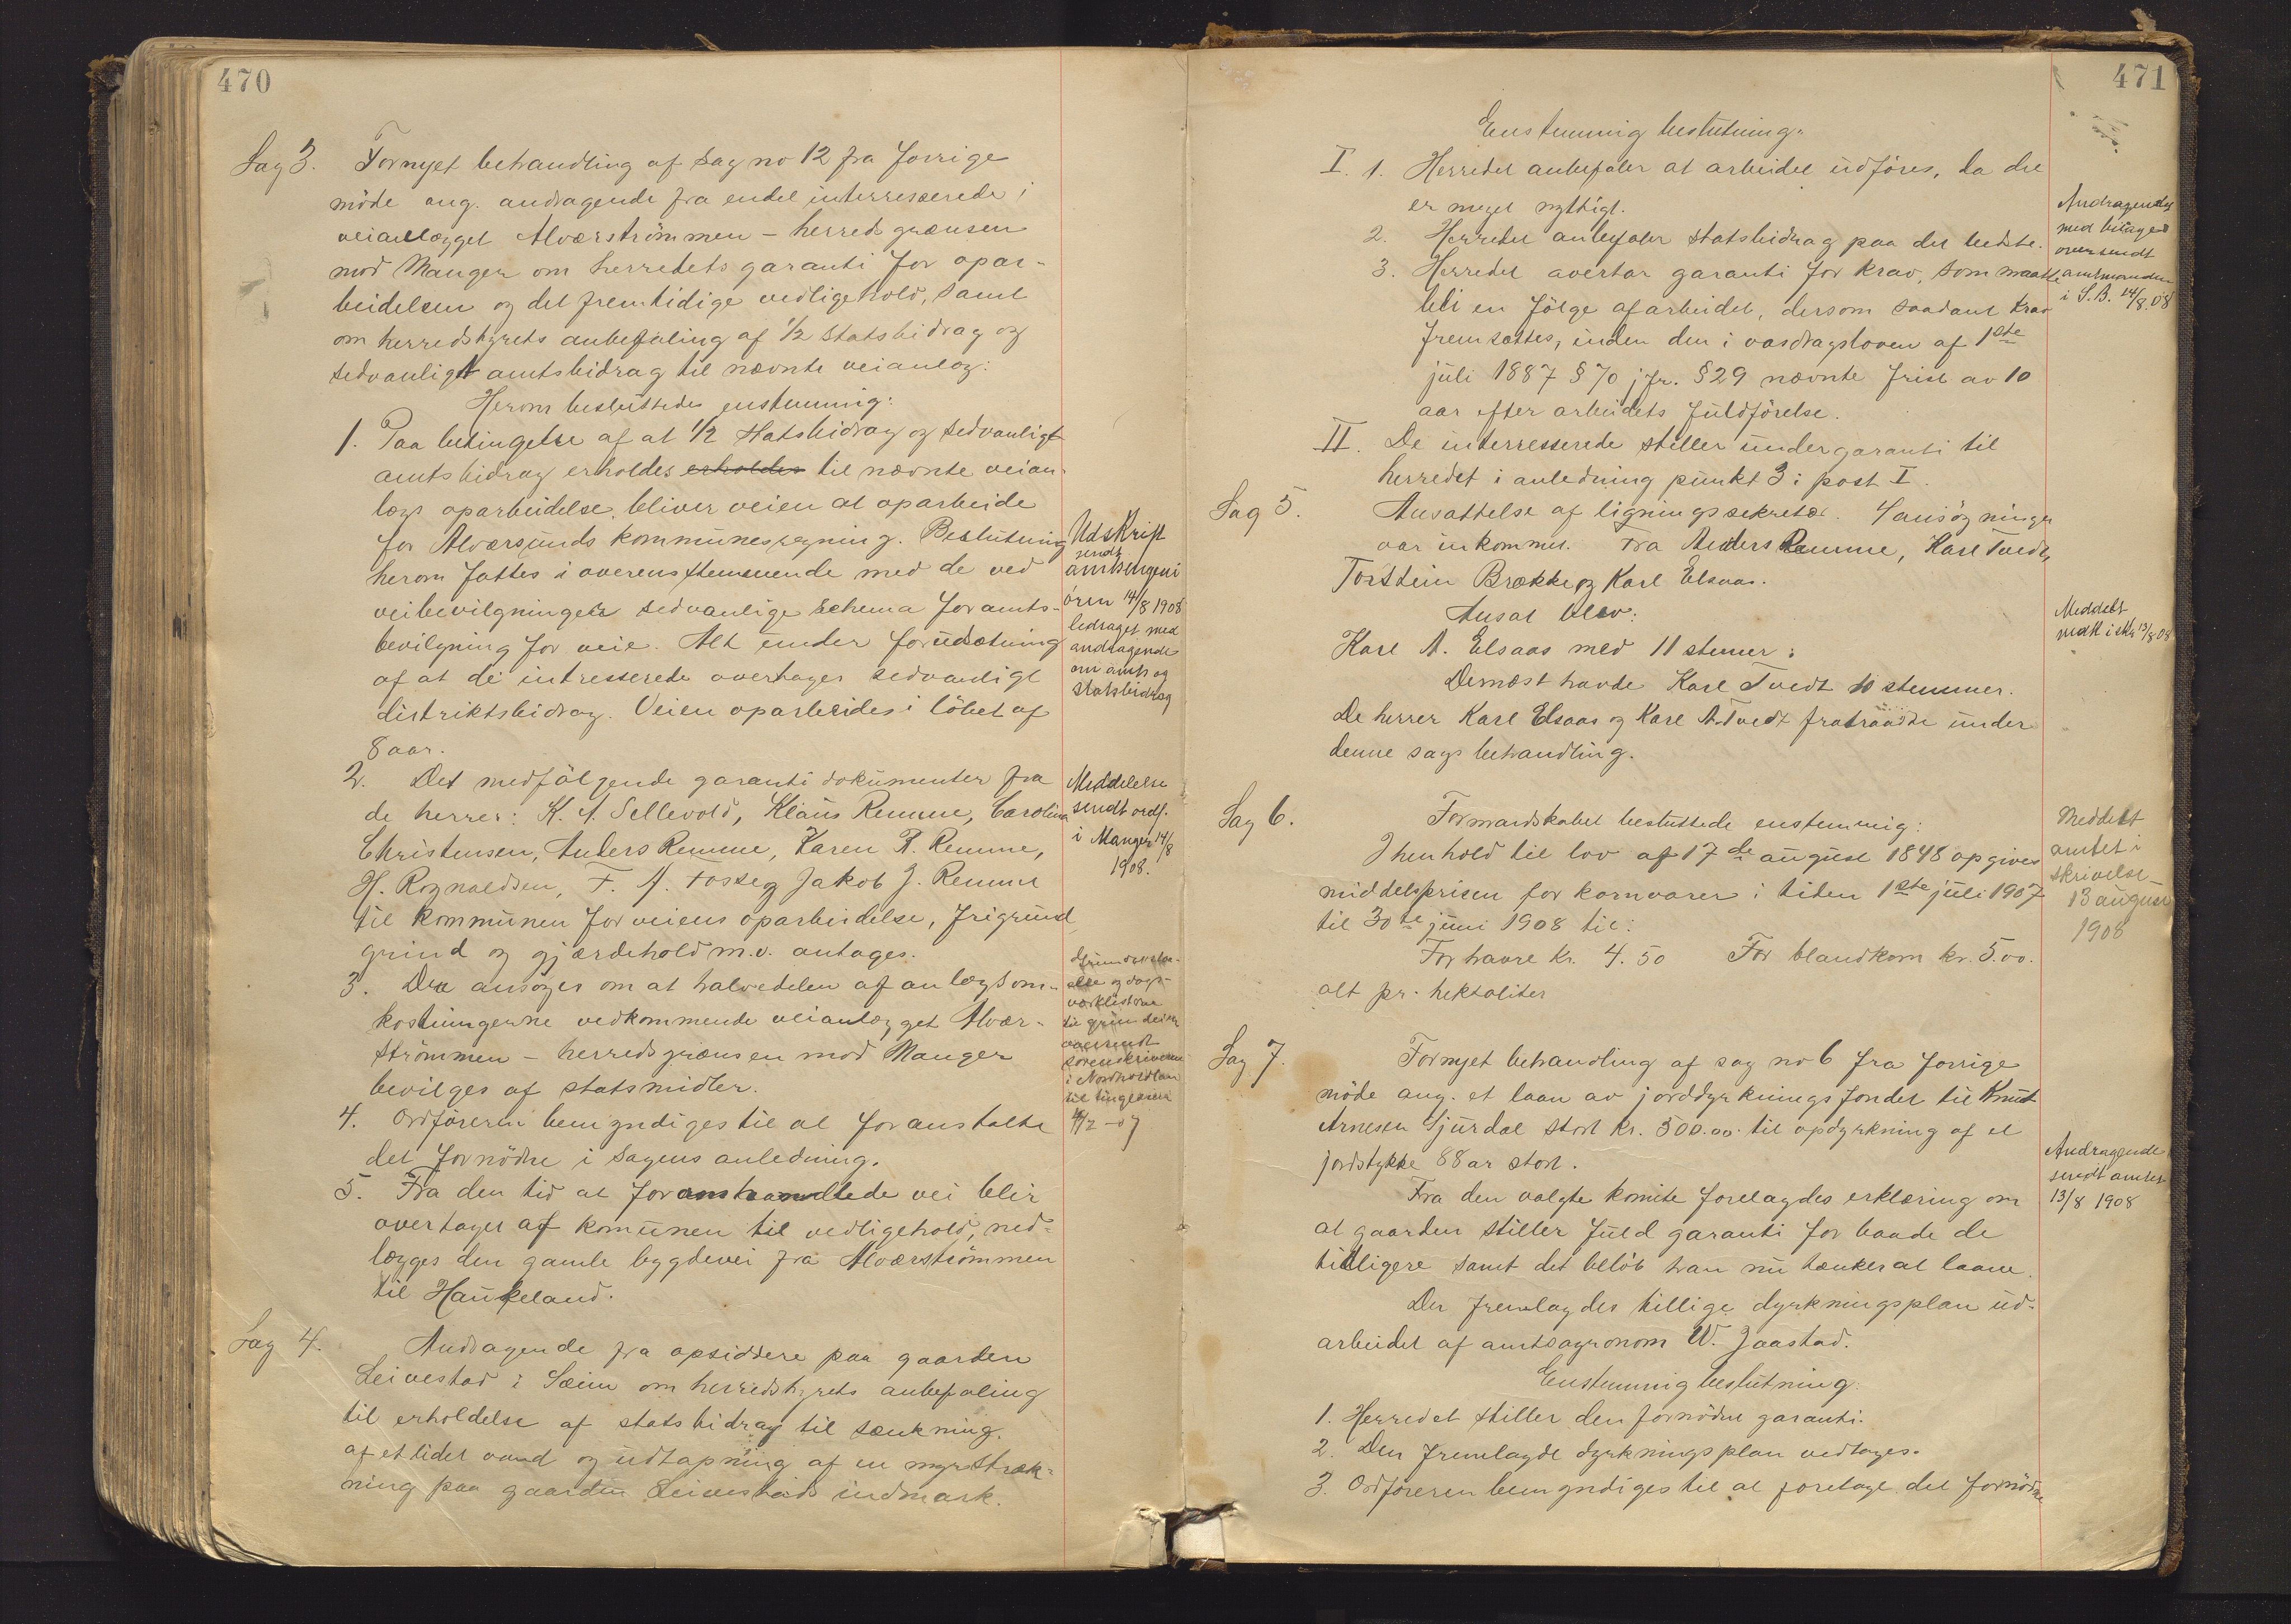 470
Sag 3. Fornyet behandling af sag no 12 fra forrige
möde ang. andragende fra endel interreserede i
veianlægget Alværströmmen - herreds grænsen
mod Manger om herredets garanti for opar-
beidelsen og det fremtidige vedligehold, samt
om herredstyrets anbefaling af 1/2 Statsbidrag og
sedvanligt amtsbidrag til nævnte veianlæg:
Herom besluttedes enstemmig:
1. Paa betingelse af at 1/2 Statsbidrag og sedvanligt
amtsbidrag erholdes erholdes til nævnte veian-
lægs oparbeidelse, bliver veien at oparbeide
for Alversunds kommunesregning. Beslutning
herom fattes i overensstemmende med de ved
veibevilgninger sedvanlige schema for amts-
bevilgning for veie. Alt under forudsætning
af at de intresserede overtager sedvanligt
distriktsbidrag. Veien oparbeides i löbet af
8 aar.
2. Det medfölgende garanti dokumenter fra
de herrer: K. A. Sellevold, Klaus Remme, Caroline
Christensen, Anders Remme, Karen R. Remme,
H. Rognaldsen, F. A. Fosse og Jakob J. Remme
til kommunen for veiens oparbeidelse, frigrund
grind og gjærdehold m.v. antages.
3. Der ansöges om at halvedelen af anlægsom-
kostningerne vedkommende veianlægget Alvær-
strömmen - herredsgrænsen mod Manger
bevilges af statsmidler.
4. Ordföreren bemyndiges til at foranstalte
det fornödne i sagens anledning.
5. Fra den tid at foranstaaende vei blir
overtaget af komunen til vedligehold, ned-
lægges den gamle bygdevei fra Alværströmmen
til Haukeland.
Udskrift
sendt
amtsingeni
ören 14/8 1908
ledsaget med
andragende
om amts og
Statsbidrag
Meddelelse
sendt ordf.
i Manger 14/8
1908.
og dags-
oversendt
sorenskriveren
i Nordhordland
til tinglæsen
Sag 4. Andragende fra opsiddere paa gaarden
Leivestad i Sæim om herredstyrets anbefaling
til erholdelse af statsbidrag til sænkning.
af et lidet vand og udtapning af en myrstræk-
ning paa gaarden Leivestads indmark.
471
Enstemmig beslutning:
I. 1. Herredet anbefaler at arbeidet udföres, da det
er meget nyttigt.
2. Herredet anbefaler statsbidrag paa det bedste.
3. Herredet overtar garanti for krav, som maatte
bli en fölge af arbeidet, dersom saadant krav
fremsættes, inden den i vasdragsloven af 1ste
juli 1887 § 70 jfr. § 29 nævnte frist av 10
aar efter arbeidets fuldförelse.
II. De interresserede stiller undergaranti til
herredet i anledning punkt 3 i post I.
Andragendet
med bilager
oversendt
amtmanden
i S.B. 14/8.08
Sag 5. Ansættelse af ligningssekretær. 4 ansögninger
var inkommet. Fra Anders Remme, Karl Tvedt,
Torstein Brække og Karl Elsaas.
Ansat blev:
Karl A. Elsaas med 11 stemer:
Dernæst havde Karl Tvedt 10 stemmer.
De herrer Karl Elsaas og Karl A. Tvedt fratraadte under
denne sags behandling.
Meddelt
vedk i skr 13/8 08
Sag 6. Formandskabet besluttede enstemmig:
I henhold til lov af 17de august 1848 opgives
middelsprisen for kornvarer i tiden 1ste juli 1907
til 30te juni 1908 til:
For havre kr. 4.50 For blandkorn kr. 5.00.
alt pr. hektoliter
Meddelt
amtet i
skrivelse
13 august
1908
Sag 7. Fornyet behandling af sag no 6 fra forrige
möde ang. et laan av jorddyrkningsfondet til Knut
Arnesen Sjurdal stort kr. 300.00 til opdyrkning af et
jordstykke 88 ar stort.
Fra den valgte komite forelagdes erklæring om
at gaarden stiller fuld garanti for baade de
tidligere samt det belöb han nu tænker at laane.
Der fremlagdes tillige dyrkningsplan ud-
arbeidet af amtsagronom W. Jaastad.
Enstemmig beslutning:
1. Herredet stiller den fornödne garanti.
2. Den fremlagde dyrkningsplan vedtages.
3. Ordföreren bemyndiges til at foretage det fornödne
Andragende
sendt amtet
13/8 1908